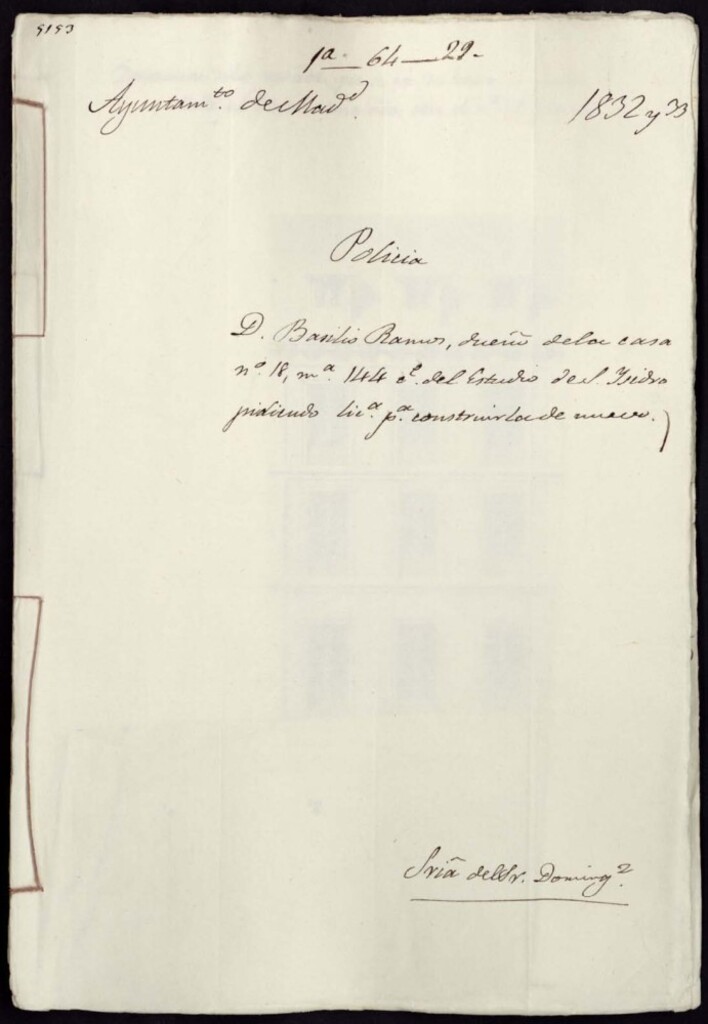 5153
1ª-64-29-
Ayuntamᵗᵒ. de Madᵈ.
1832 y 33
Policia
D. Basilio Ramos, dueño dela casa
nº. 18, mª. 144 cᵉ. del Estudio de S. Isidro
pidiendo licª. pª. construirla de nuevo.
Sriã del Sr. Domingᶻ.